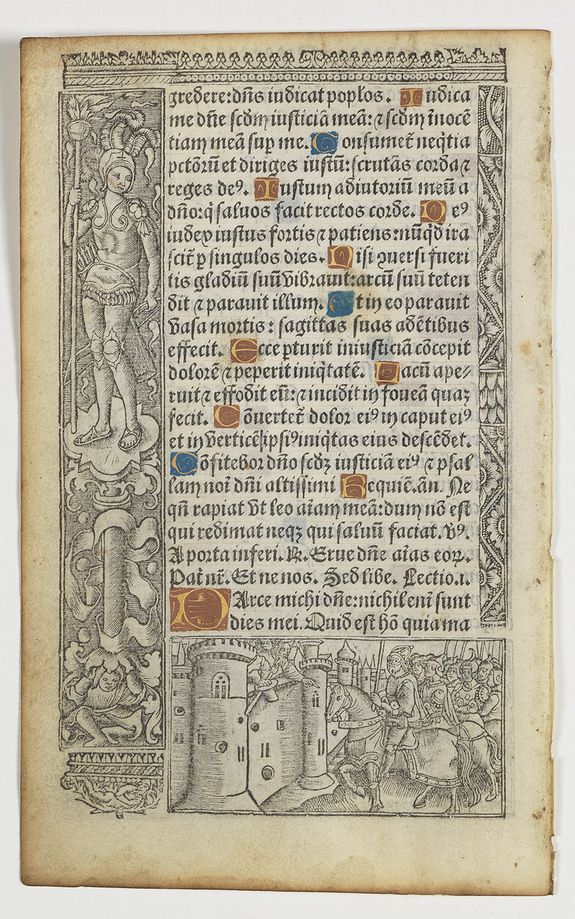 gredere: dn̄s iudicat popľos. Iudica
me dn̄e scd̄m iusticiā meā: ⁊ scd̄m īnocē
tiam meā suꝑ me. Consumet̄ neq̄tia
pctōrū et diriges iustū: scrutās corda ⁊
reges deꝰ. Iustum adiutoriū meū a
dn̄o: q̄ saluos facit rectos corde. Deꝰ
iudex iustus fortis ⁊ patiens: nūq̄d ira
scit᷑ ꝑ singulos dies. Nisi ꝯuersi fueri
tis gladiū suū vibrauit: arcū suū teten
dit ⁊ parauit illum. Et in eo parauit
vasa mortis: sagittas suas adētibus
effecit. Ecce ꝑturit iniusticiā cōcepit
dolorē ⁊ peperit iniq̄tatē. Lacū ape⸗
ruit ⁊ effodit eū: ⁊ incidit in foueā quaʒ
fecit. Cōuertet᷑ dolor eiꝰ in caput eiꝰ
et in verticē ipsiꝰ iniq̄tas eius descēdet.
Cōfitebor dn̄o scd̄ʒ iusticiā eiꝰ ⁊ psal
lam noī dn̄i altissimi Requiē. an. Ne
qn̄ rapiat vt leo aīam meā: dum nō est
qui redimat neqʒ qui saluū faciat. vꝰ.
A porta inferi. ℟. Erue dn̄e aīas eoꝝ.
Pat᷑ nr̄. Et ne nos. Sed libe. Lectio. i.
PArce michi dn̄e: nichil enī sunt
dies mei. Quid est hō quia ma